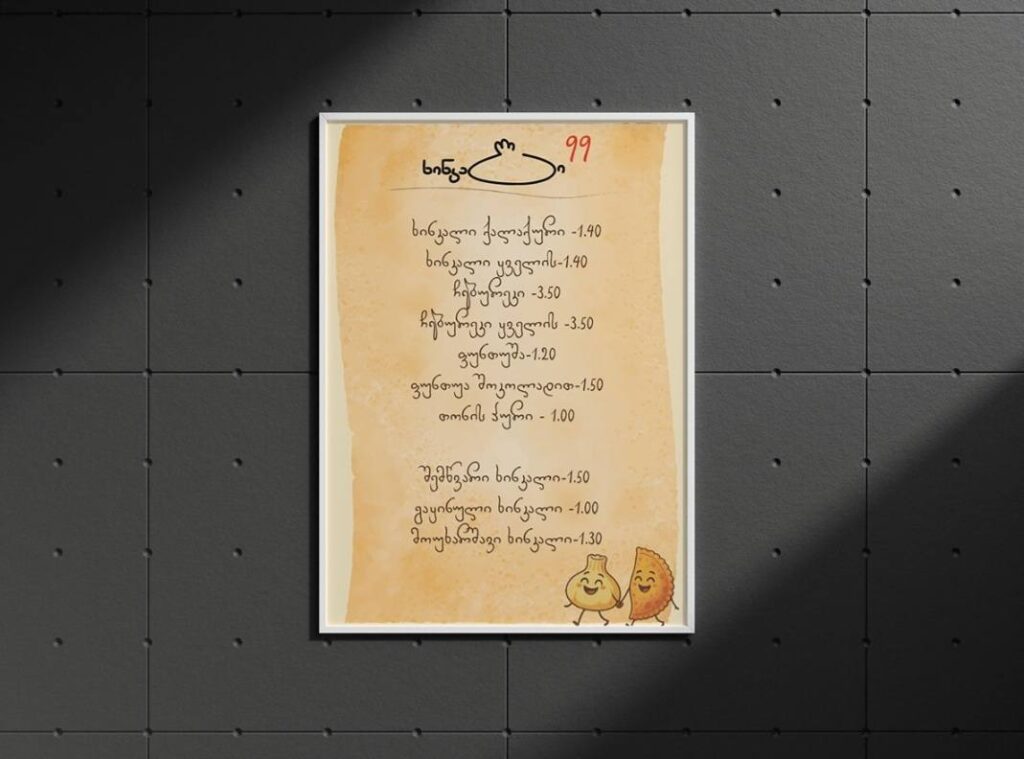 ხინკალი 99
ხინკალი ქალაქური -1.40
ხინკალი ყველის-1.40
ჩებურეკი -3.50
ჩებურეკი ყველის -3.50
ფუნთუშა-1.20
ფუნთუა შოკოლადით-1.50
თონის პური - 1.00
შემწვარი ხინკალი-1.50
გაყინული ხინკალი -1.00
მოუხარშავი ხინკალი-1.30